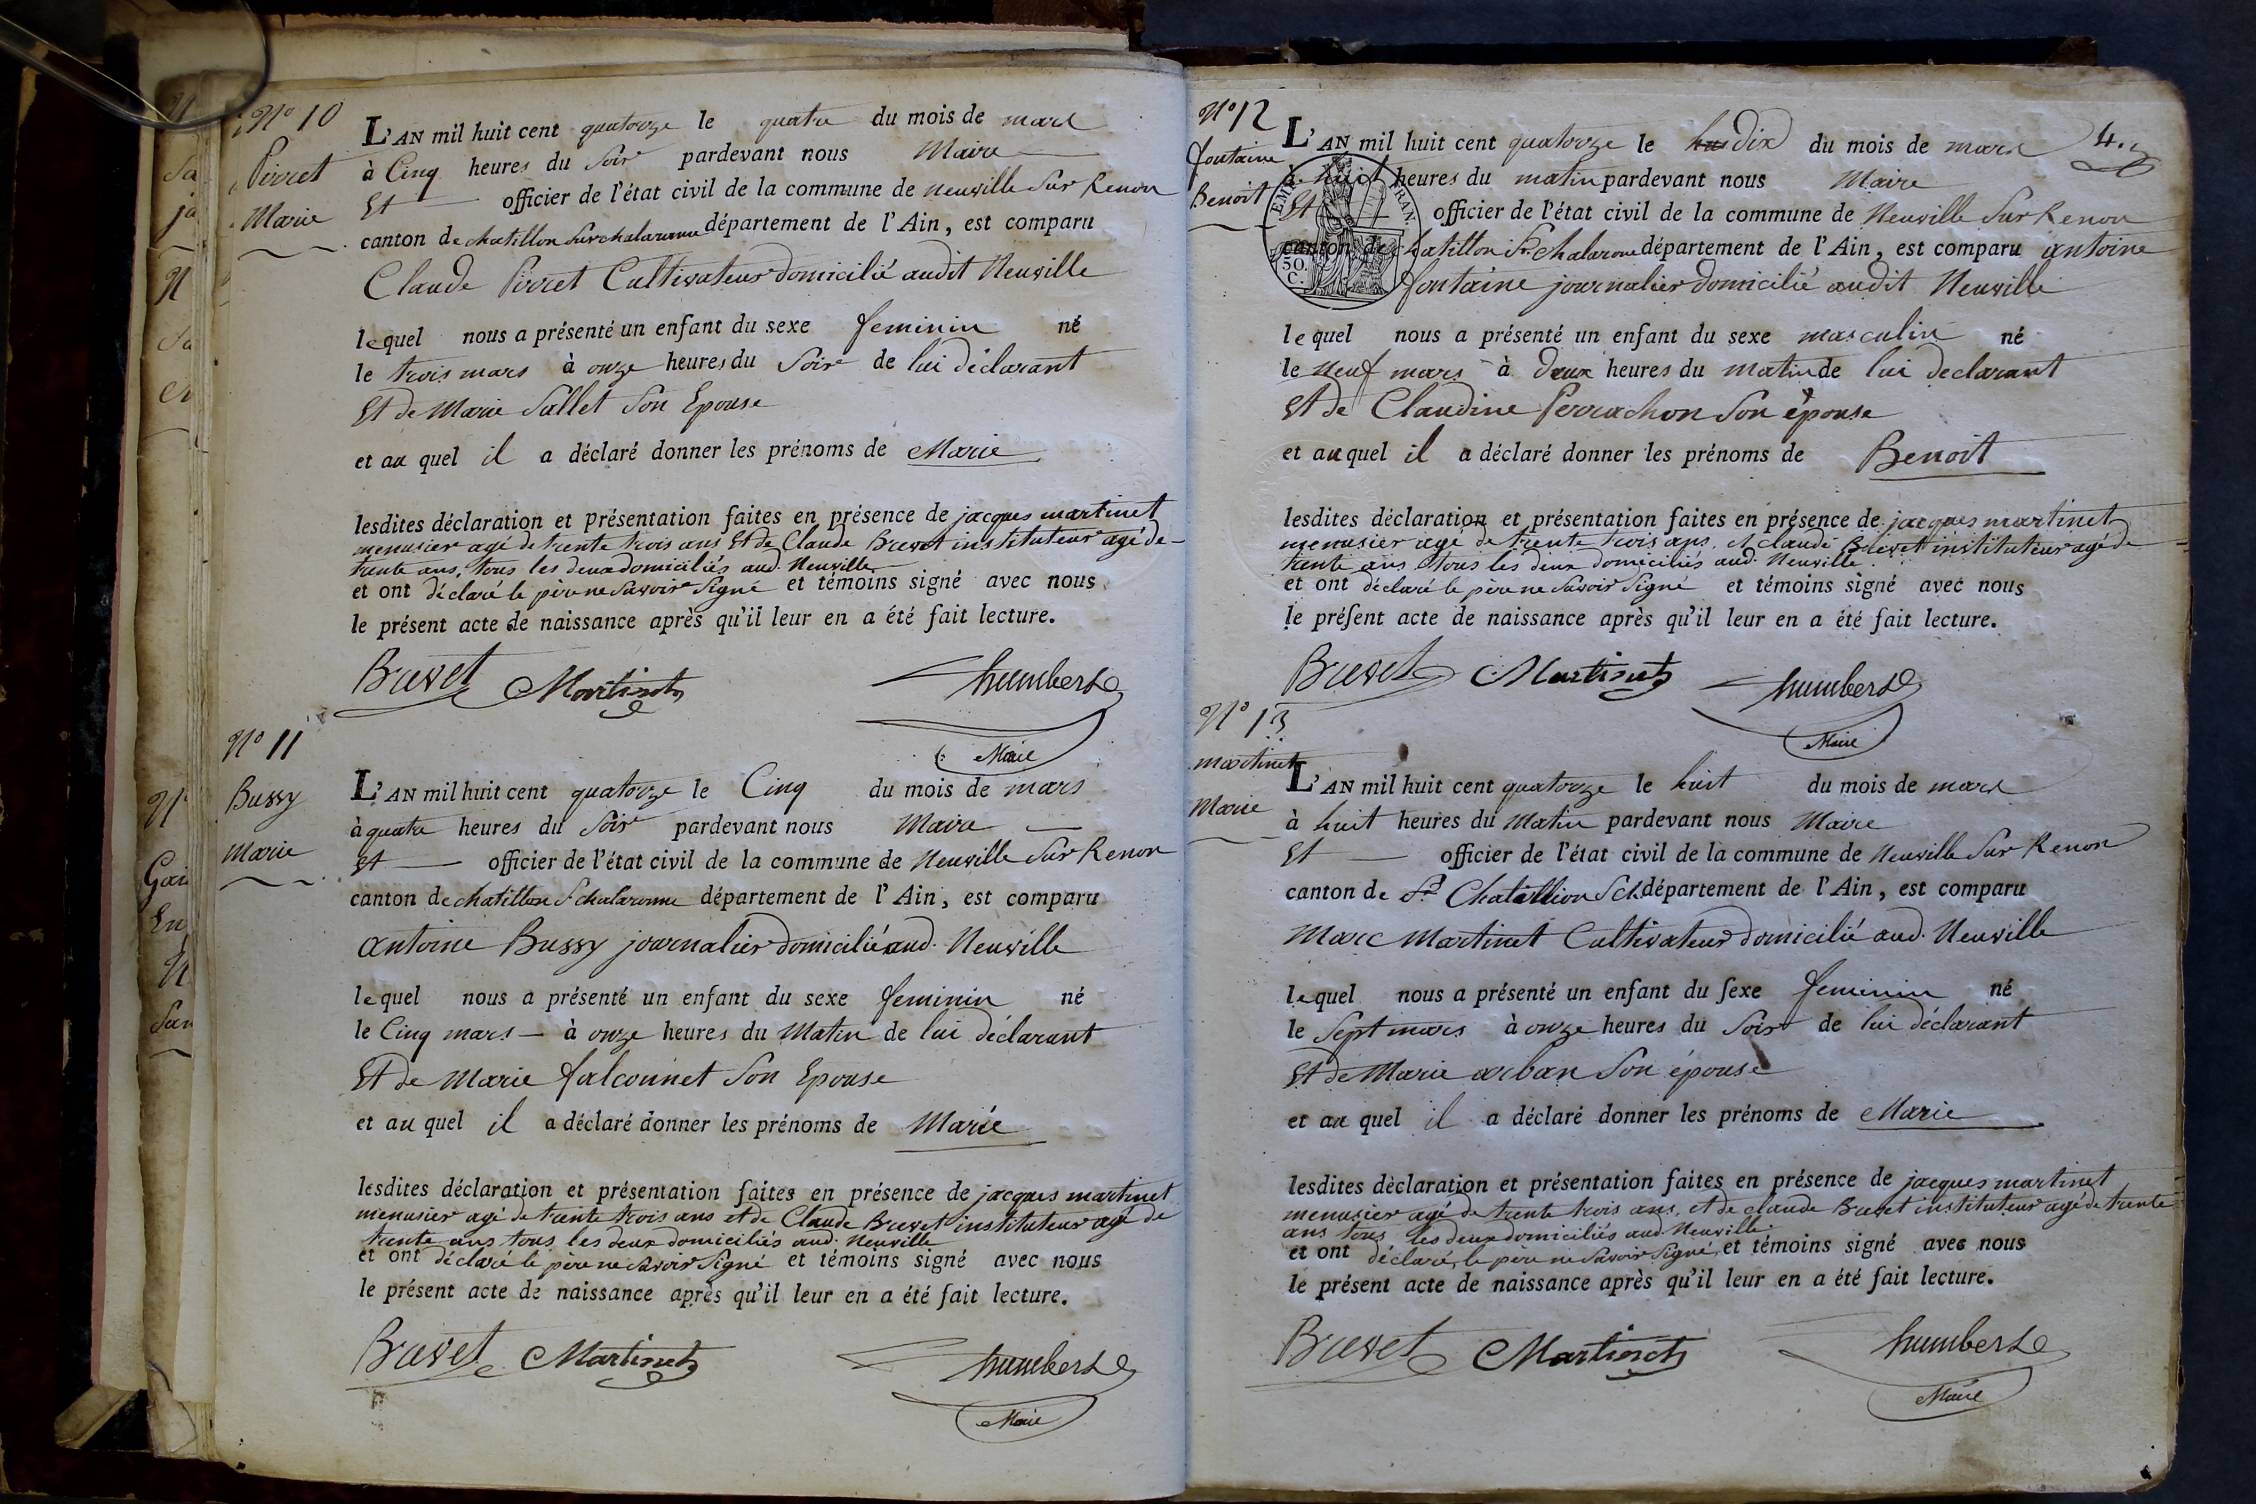 N° 10
Pirret
Marie
L'AN mil huit cent quatorze le quatre du mois de mars
à Cinq heures du Soir pardevant nous Maire
Et officier de l'état civil de la commune de Neuville Sur Renon
canton de chatillon Sur chalaronne département de l'Ain, est comparu
Claude Pirret Cultivateur domicilié audit Neuville
lequel nous a présenté un enfant du sexe feminin né
le trois mars à onze heures du Soir de lui déclarant
Et de Marie Sallet Son Epouse
et au quel il a déclaré donner les prénoms de Marie
lesdites déclaration et présentation faites en présence de jacques martinet
menusier agé de trente trois ans Et de Claude Brevet instituteur agé de
trente ans, tous les deux domiciliés aud. Neuville
et ont déclaré le père ne Savoir Signé et témoins signé avec nous
le présent acte de naissance après qu'il leur en a été fait lecture.
Brevet Martinet humbert
Maire
N° 11
Bussy
Marie
L'AN mil huit cent quatorze le Cinq du mois de mars
à quatre heures du Soir pardevant nous Maire
Et officier de l'état civil de la commune de Neuville Sur Renon
canton de chatillon S chalaronne département de l'Ain, est comparu
antoine Bussy journalier domicilié aud. Neuville
lequel nous a présenté un enfant du sexe feminin né
le Cinq mars à onze heures du Matin de lui déclarant
Et de Marie falconnet Son Epouse
et au quel il a déclaré donner les prénoms de Marie
lesdites déclaration et présentation faites en présence de jacques martinet
menusier agé de trente trois ans et de Claude Brevet instituteur agé de
trente ans tous les deux domiciliés aud. Neuville
et ont déclaré le père ne Savoir Signé et témoins signé avec nous
le présent acte de naissance après qu'il leur en a été fait lecture.
Brevet Martinet humbert
Maire
N° 12
fontaine
Benoit
4.
L'AN mil huit cent quatorze le dix du mois de mars
à huit heures du matin pardevant nous Maire
Et officier de l'état civil de la commune de Neuville Sur Renon
canton de chatillon Sr. chalarone département de l'Ain, est comparu antoine
fontaine journalier domicilié audit Neuville
EMP. FRAN.
50.
C.
lequel nous a présenté un enfant du sexe masculin né
le Neuf mars à Deux heures du matin de lui declarant
Et de Claudine Perrachon Son épouse
et au quel il a déclaré donner les prénoms de Benoit
lesdites déclaration et présentation faites en présence de jacques martinet
menusier agé de trente trois ans, et claude Brevet instituteur agé de
trente ans tous les deux domiciliés aud. Neuville.
et ont déclaré le père ne Savoir Signé et témoins signé avec nous
le préſent acte de naissance après qu'il leur en a été fait lecture.
Brevet Martinet humbert
Maire
N° 13
martinet
Marie
L'AN mil huit cent quatorze le huit du mois de mars
à huit heures du Matin pardevant nous Maire
Et officier de l'état civil de la commune de Neuville Sur Renon
canton de Chatillion S ch. département de l'Ain, est comparu
Marc Martinet Cultivateur domicilié aud. Neuville
lequel nous a présenté un enfant du ſexe feminin né
le Sept mars à onze heures du Soir de lui déclarant
Et de Marie arban Son épouse
et au quel il a déclaré donner les prénoms de Marie
lesdites déclaration et présentation faites en présence de jacques martinet
menusier agé de trente trois ans, et de claude Brevet instituteur agé de trente
ans tous les deux domiciliés aud. Neuville.
et ont déclaré, le père ne Savoir Signé, et témoins signé avec nous
le présent acte de naissance après qu'il leur en a été fait lecture.
Brevet Martinet humbert
Maire